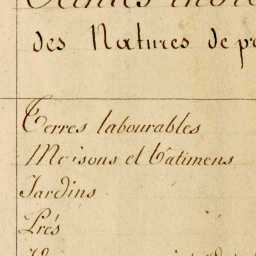 des Natures de
Terres labourables
Maisons et batimens
Jardins
Prés